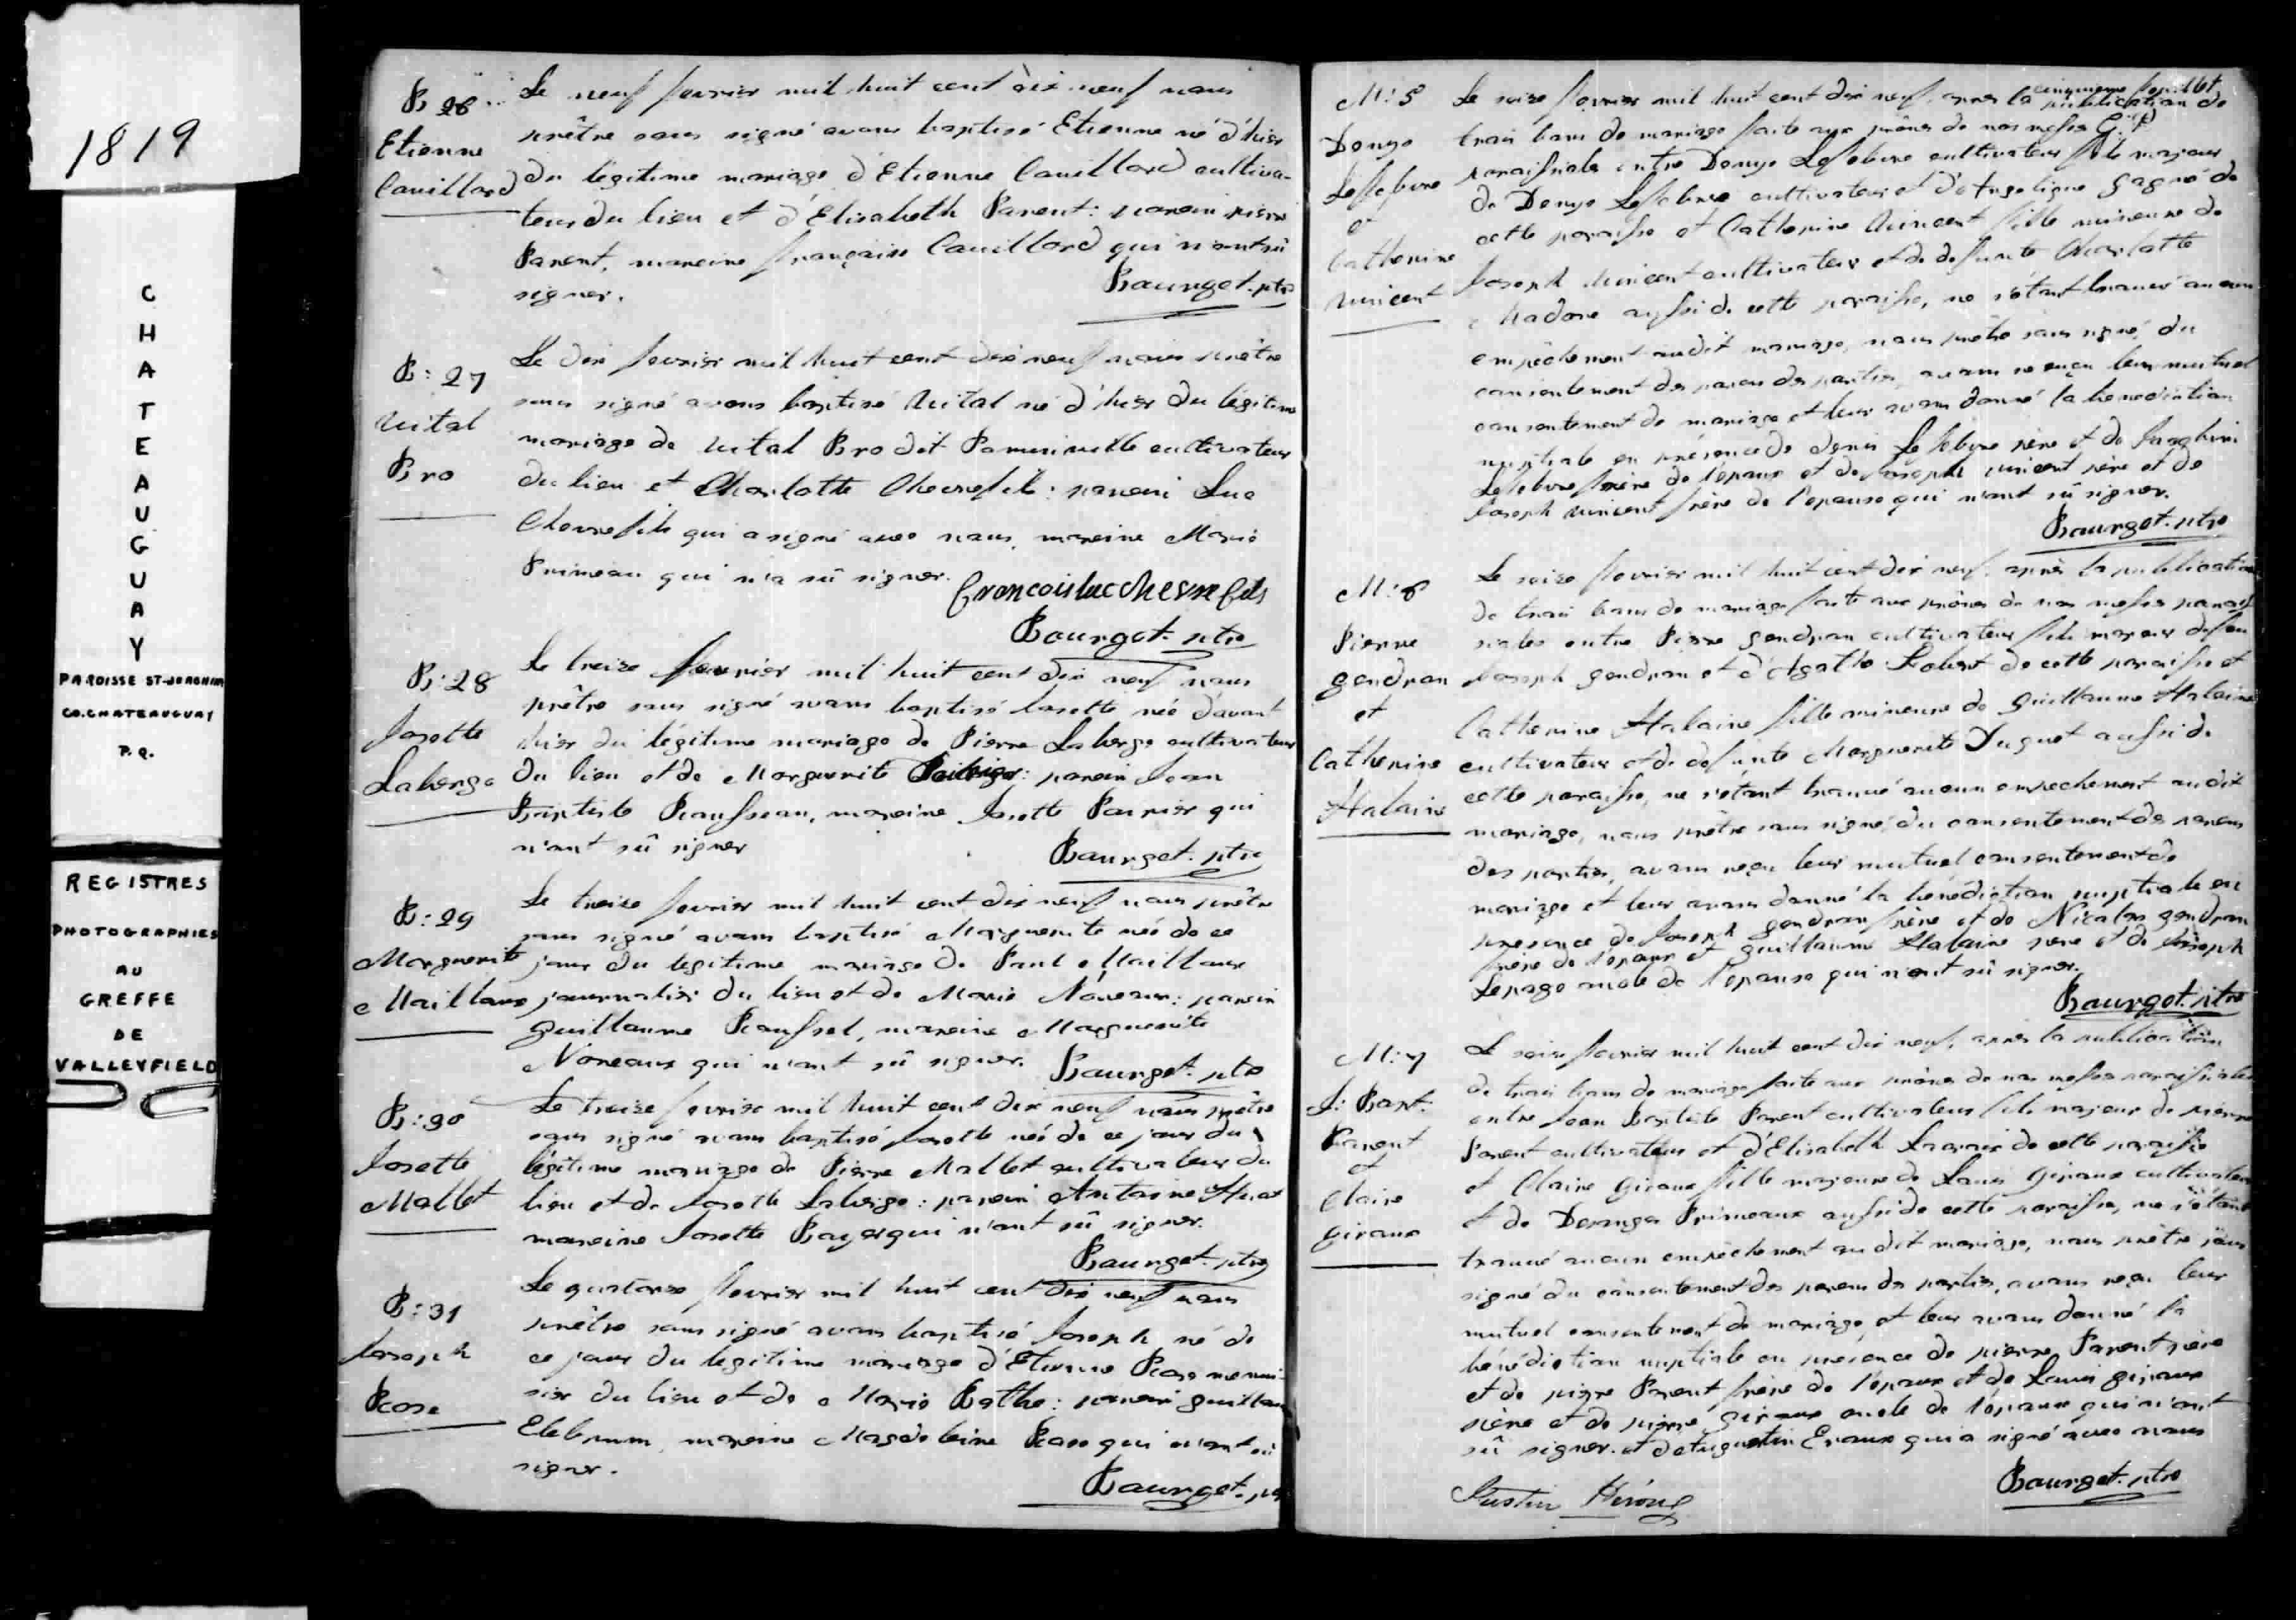 1819
CHATEAUGUAY
PAROISSE ST-JOACHIM
CO. CHATEAUGUAY
P.Q.
REGISTRES
PHOTOGRAPHIES
AU
GREFFE
DE
VALLEYFIELD
B 26
Etienne
Cauillard
Le neuf fevrier mil huit cent dix neuf nous
prêtre sous signé avons baptisé Etienne né d'hier
du légitime mariage d'Etienne Cauillard cultiva-
teur du lieu et d'Elisabeth Parent: parein pierre
Parent, mareine françoise Cauillard qui n'ont sû
signer.
Bourget. ptre
B: 27
Vital
Bro
Le dix fevrier mil huit cent dix neuf nous prêtre
sous signé avons baptisé Vital né d'hier du légitime
mariage de Vital Bro dit Pominville cultivateur
du lieu et Charlotte Chevrefils: parein Luc
Chevrefils qui a signé avec nous, mareine Marie
Primeau qui n'a sû signer.
francois luc chevrefils
Bourget. ptre
B: 28
Josette
Laberge
Le treize fevrier mil huit cent dix neuf nous
prêtre sous signé avons baptisé Josette née d'avant
hier du légitime mariage de Pierre Laberge cultivateur
du lieu et de Marguerite : parein Jean
Baptiste Rousseau, mareine Josette Poirier qui
n'ont sû signer
Bourget. ptre
B: 29
Marguerite
Mailloux
Le treize fevrier mil huit cent dix neuf nous prêtre
sous signé avons baptisé Marguerite née de ce
jour du legitime mariage de Paul Mailloux
journalier du lieu et de Marie Noreaux: parein
Guillaume Roussel, mareine Marguerite
Noreaux qui n'ont sû signer.
Bourget. ptre
B: 30
Josette
Mallet
Le treize fevrier mil huit cent dix neuf nous prêtre
sous signé avons baptisé Josette née de ce jour du
légitime mariage de Pierre Mallet cultivateur du
lieu et de Josette Laberge: parein Antoine
mareine Josette Boyer qui n'ont sû signer.
Bourget. ptre
B: 31
Joseph
Rose
Le quatorze fevrier mil huit cent dix neuf nous
prêtre sous signé avons baptisé Joseph né de
ce jour du legitime mariage d'Etienne Rose menui-
sier du lieu et de Marie Bathe: parein Guillau
Elebrum, mareine Magdeleine Rose qui n'ont sû
signer.
Bourget. ptre
M: 5
Denys
Lefebvre
et
Catherine
Vincent
cinquieme feuillet
Le seize fevrier mil huit cent dix neuf, apres la publication de
trois bans de mariage faite aux prônes de nos messes G. P.
paroissiales entre Denys Lefebvre cultivateur fils majeur
de Denys Lefebvre cultivateur et d'Angelique Gagné de
cette paroisse et Catherine Vincent fille mineure de
Joseph Vincent cultivateur et de defunte Charlotte
Madore aussi de cette paroisse, ne s'étant trouvé aucun
empêchement audit mariage, nous prêtre sous signé, du
consentement des parens des parties, avons reçu leur mutuel
consentement de mariage et leur avons donné la benediction
nuptiale en présence de denis Lefebvre père et de Joachim
Lefebvre frère de l'époux et de Joseph vincent père et de
Joseph vincent frère de l'epouse qui n'ont sû signer.
Bourget. ptre
M: 6
Pierre
gendron
et
Catherine
Halaine
Le seize fevrier mil huit cent dix neuf, après la publication
de trois bans de mariage faite aux prônes de nos messes parois
siales entre Pierre gendron cultivateur fils majeur de feu
Joseph gendron et d'Agathe Robert de cette paroisse et
Catherine Halaine fille mineure de Guillaume Halaine
cultivateur et de defunte Marguerite Duquet aussi de
cette paroisse, ne s'étant trouvé aucun empechement audit
mariage, nous prêtre sous signé, du consentement des parens
des parties, avons reçu leur mutuel consentement de
mariage et leur avons donné la bénédiction nuptiale en
presence de Joseph gendron frère et de Nicolas gendron
frère de l'époux et Guillaume Halaine pere et de Joseph
Lepage oncle de l'epouse qui n'ont sû signer.
Bourget. ptre
M: 7
J: Bapt.
Parent
et
Claire
Giroux
Le seize fevrier mil huit cent dix neuf, après la publication
de trois bans de mariage faite aux prônes de nos messes paroissiales
entre Jean Baptiste Parent cultivateur fils majeur de pierre
Parent cultivateur et d'Elisabeth de cette paroisse
et Claire Giroux fille majeure de Louis Giroux cultivateur
et de Desanges Primeaux aussi de cette paroisse, ne s'étant
trouvé aucun empêchement au dit mariage, nous prêtre sous
signé du consentement des parens des parties, avons reçu leur
mutuel consentement de mariage et leur avons donné la
bénédiction nuptiale en présence de pierre Parent père
et de pierre Parent frère de l'époux et de Louis giroux
père et de pierre giroux oncle de l'épouse qui n'ont
sû signer. et d'Augustin Eroux qui a signé avec nous
Bourget. ptre
Justin Héroux